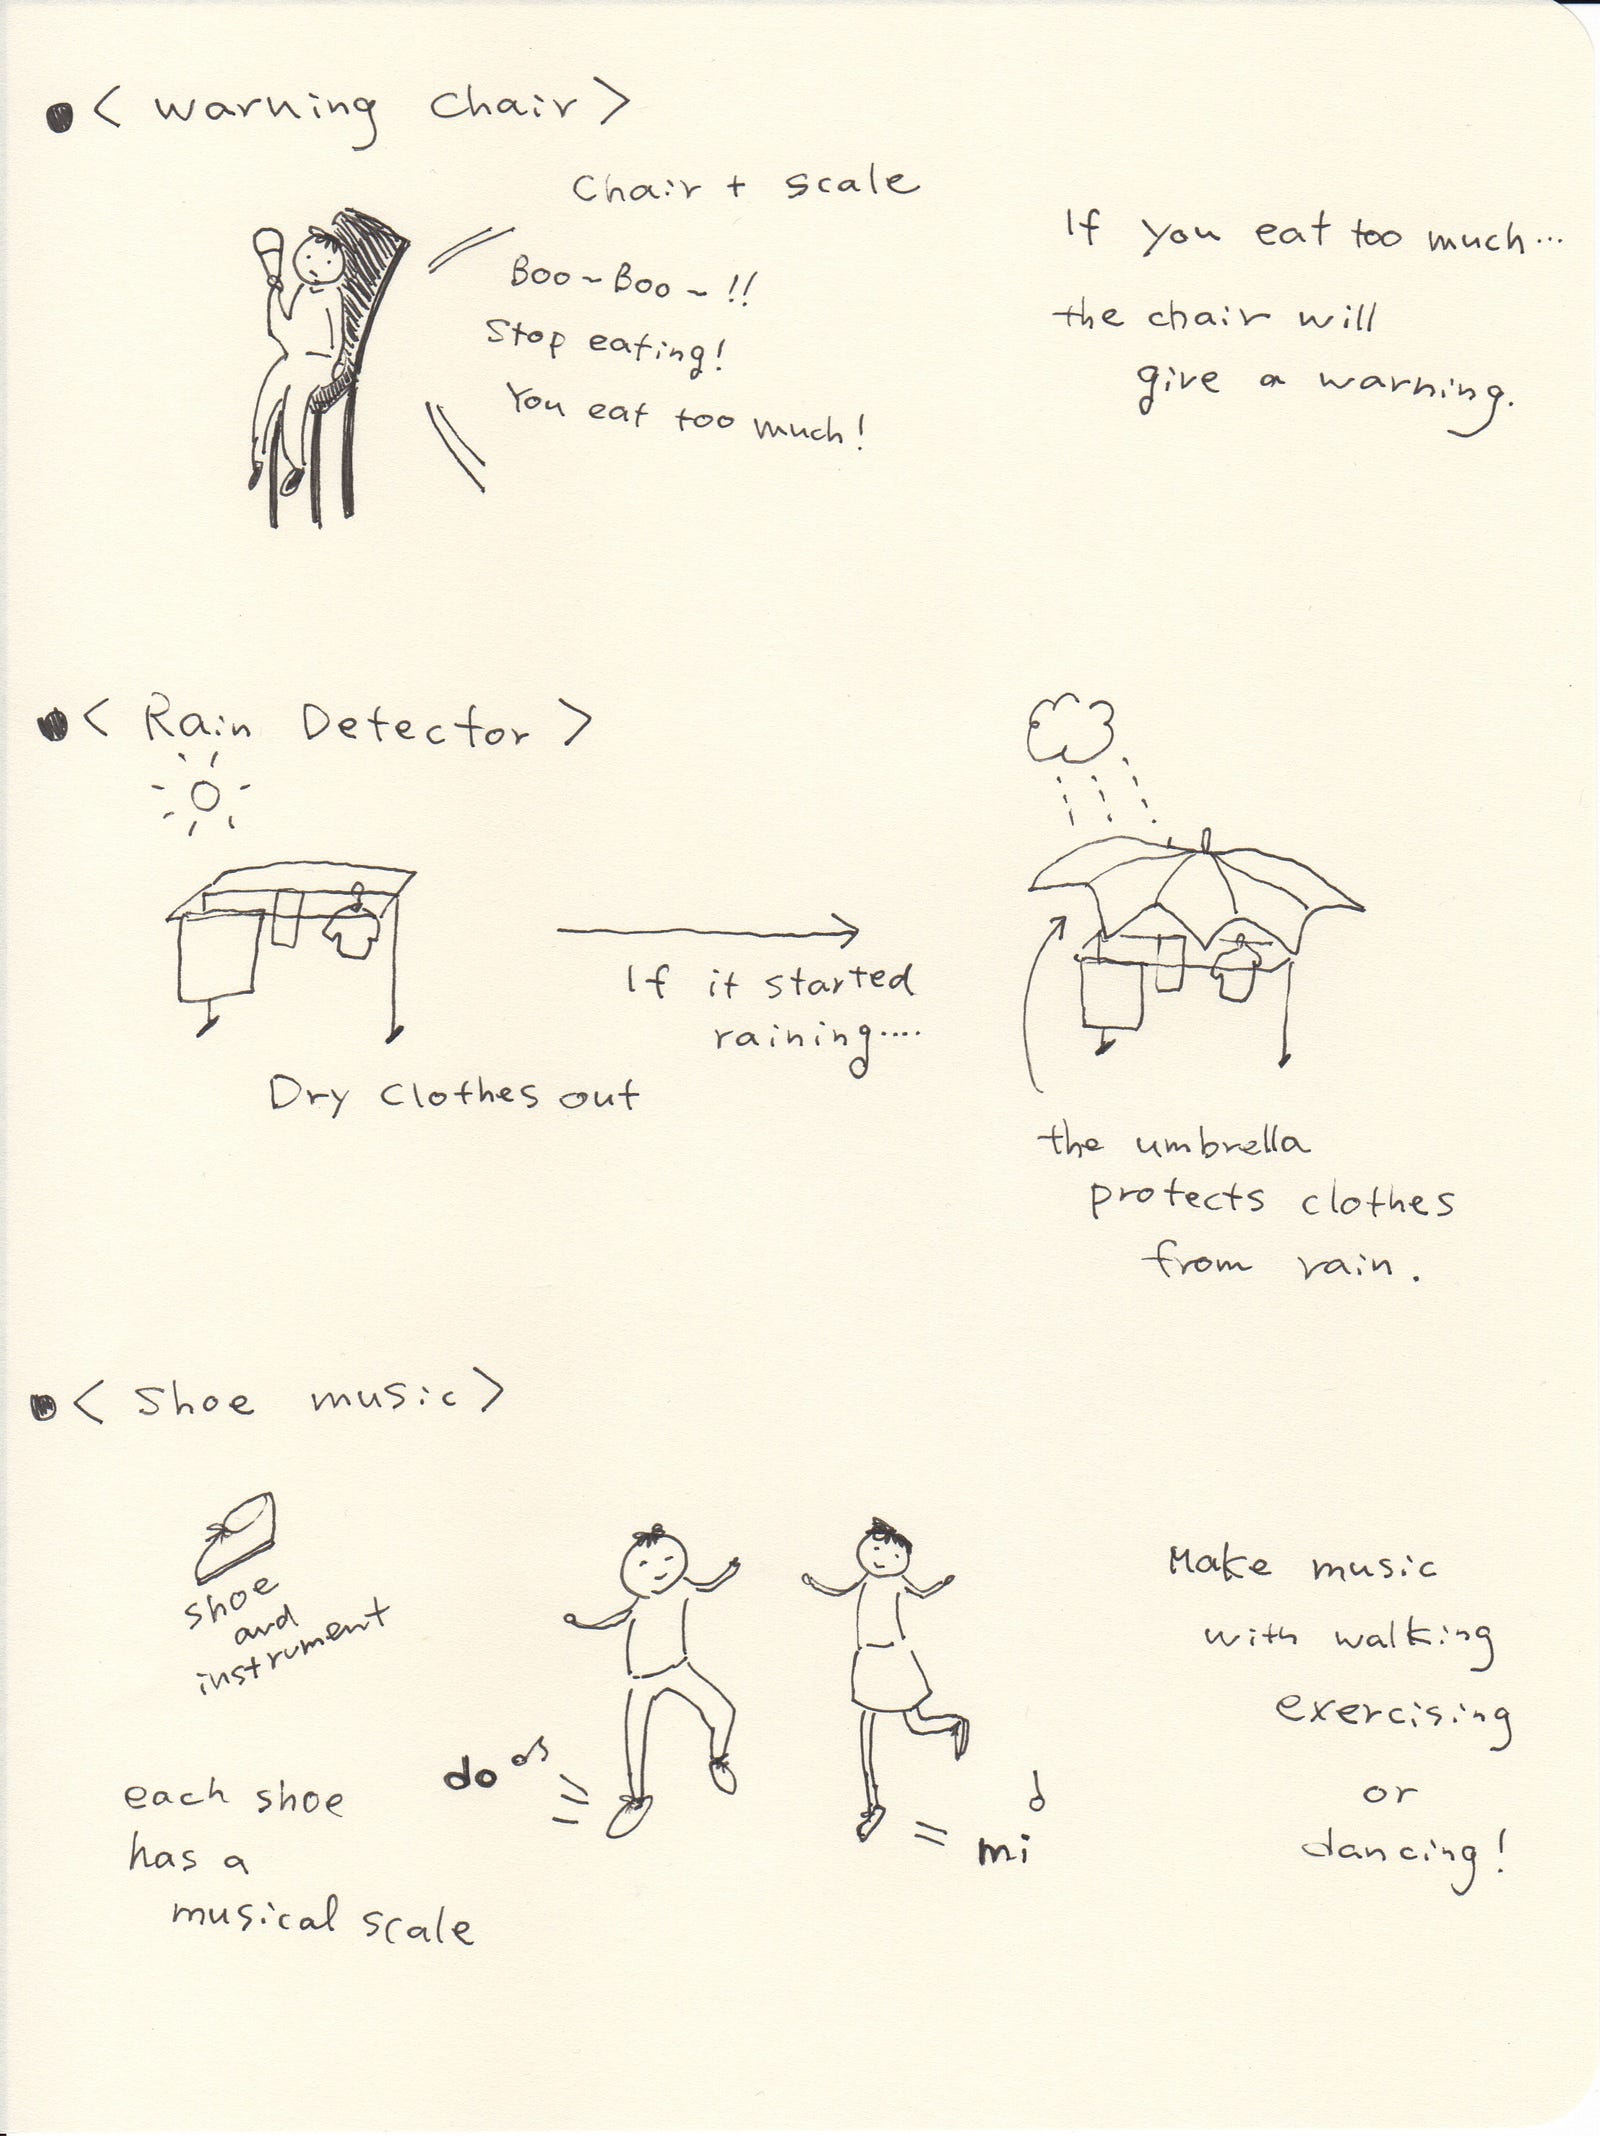 < Warning Chair >
Chair + scale
Boo~Boo~!!
Stop eating!
You eat too much!
If you eat too much...
the chair will
give a warning.
< Rain Detector >
Dry clothes out
If it started
raining....
the umbrella
protects clothes
from rain.
< Shoe music >
shoe
and
instrument
each shoe
has a
musical scale
do
mi
Make music
with walking
exercising
or
dancing!